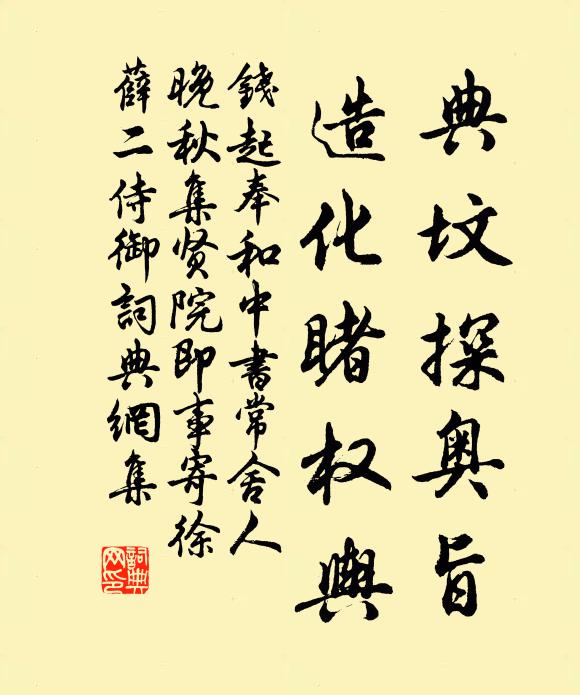 典坟探奥旨
造化睹权舆
钱起奉和中書常舍人
晚秋集贤院即事寄徐
薛二侍御詞典網集
詞典网印